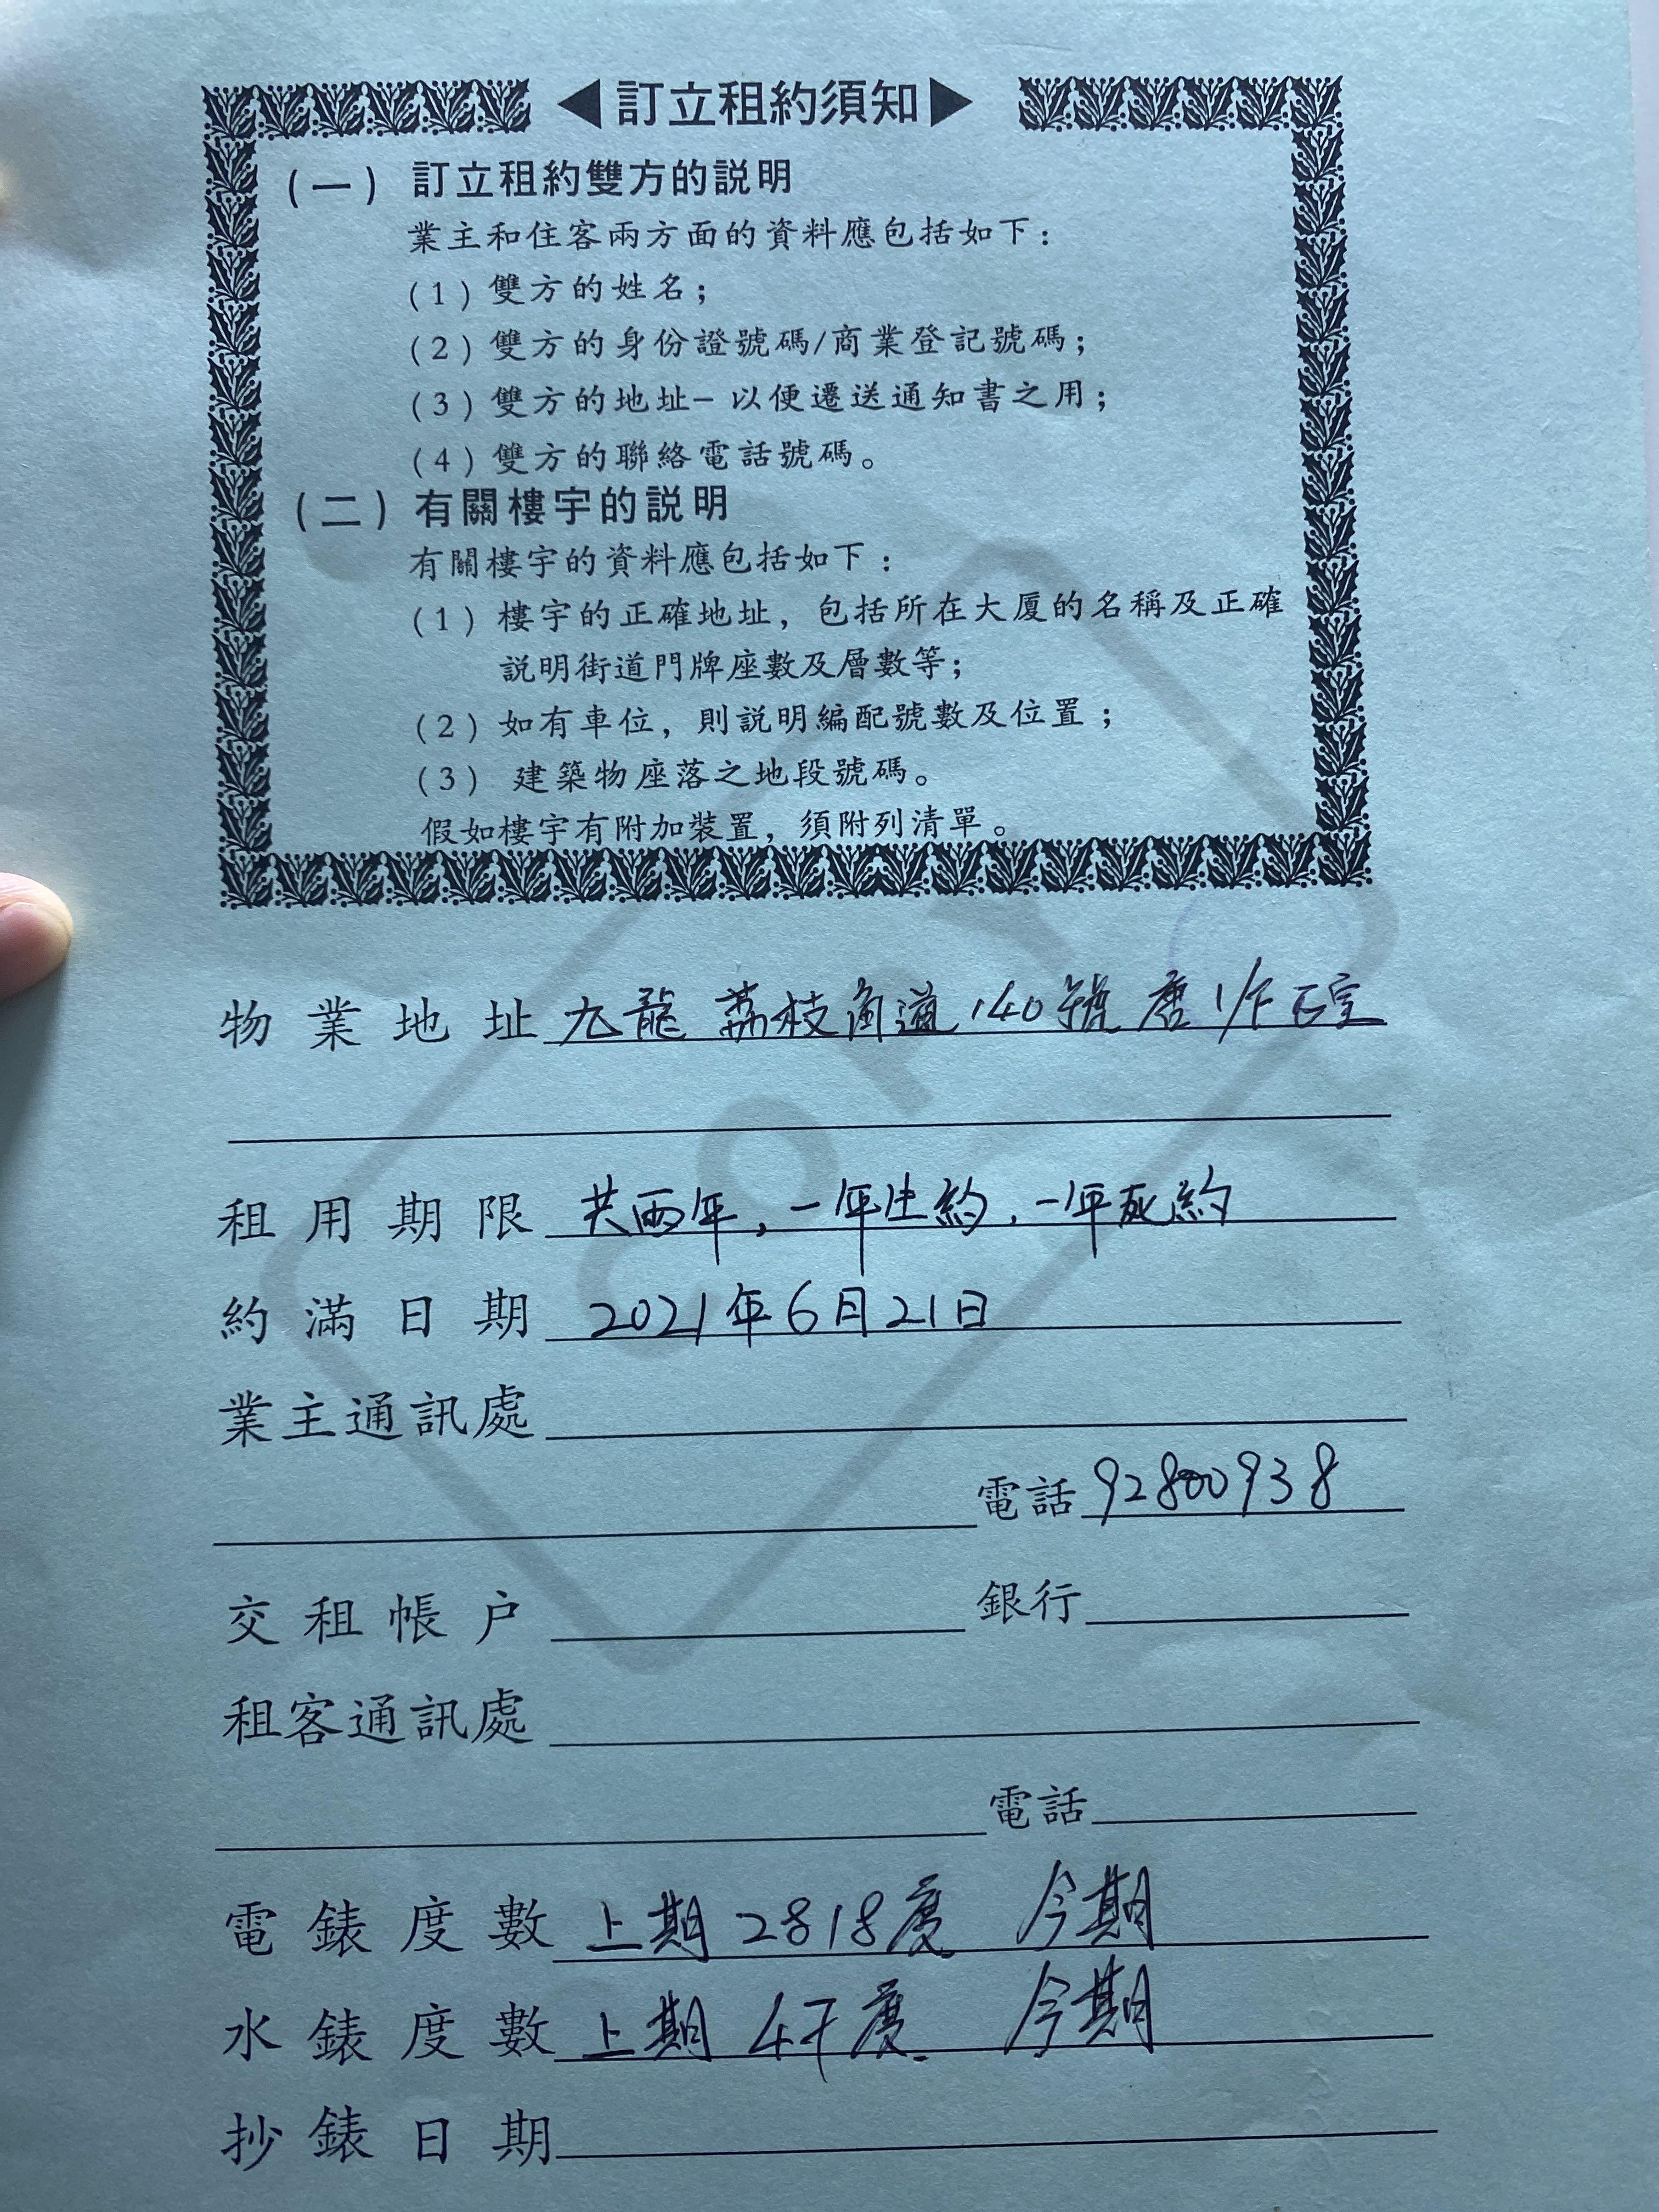 ◀訂立租約須知▶
(一) 訂立租約雙方的説明
業主和住客兩方面的資料應包括如下：
(1) 雙方的姓名；
(2) 雙方的身份證號碼/商業登記號碼；
(3) 雙方的地址－以便遷送通知書之用；
(4) 雙方的聯絡電話號碼。
(二) 有關樓宇的説明
有關樓宇的資料應包括如下：
(1) 樓宇的正確地址，包括所在大厦的名稱及正確
説明街道門牌座數及層數等；
(2) 如有車位，則説明編配號數及位置；
(3) 建築物座落之地段號碼。
假如樓宇有附加裝置，須附列清單。
COPY
物業地址 九龍 荔枝角道 140號 唐 1/F 室
租用期限 共兩年，一年生約，一年死約
約滿日期 2021年6月21日
業主通訊處
電話 92800938
交租帳户 銀行
租客通訊處
電話
電錶度數 上期 2818度 今期
水錶度數 上期 度 今期
抄錶日期